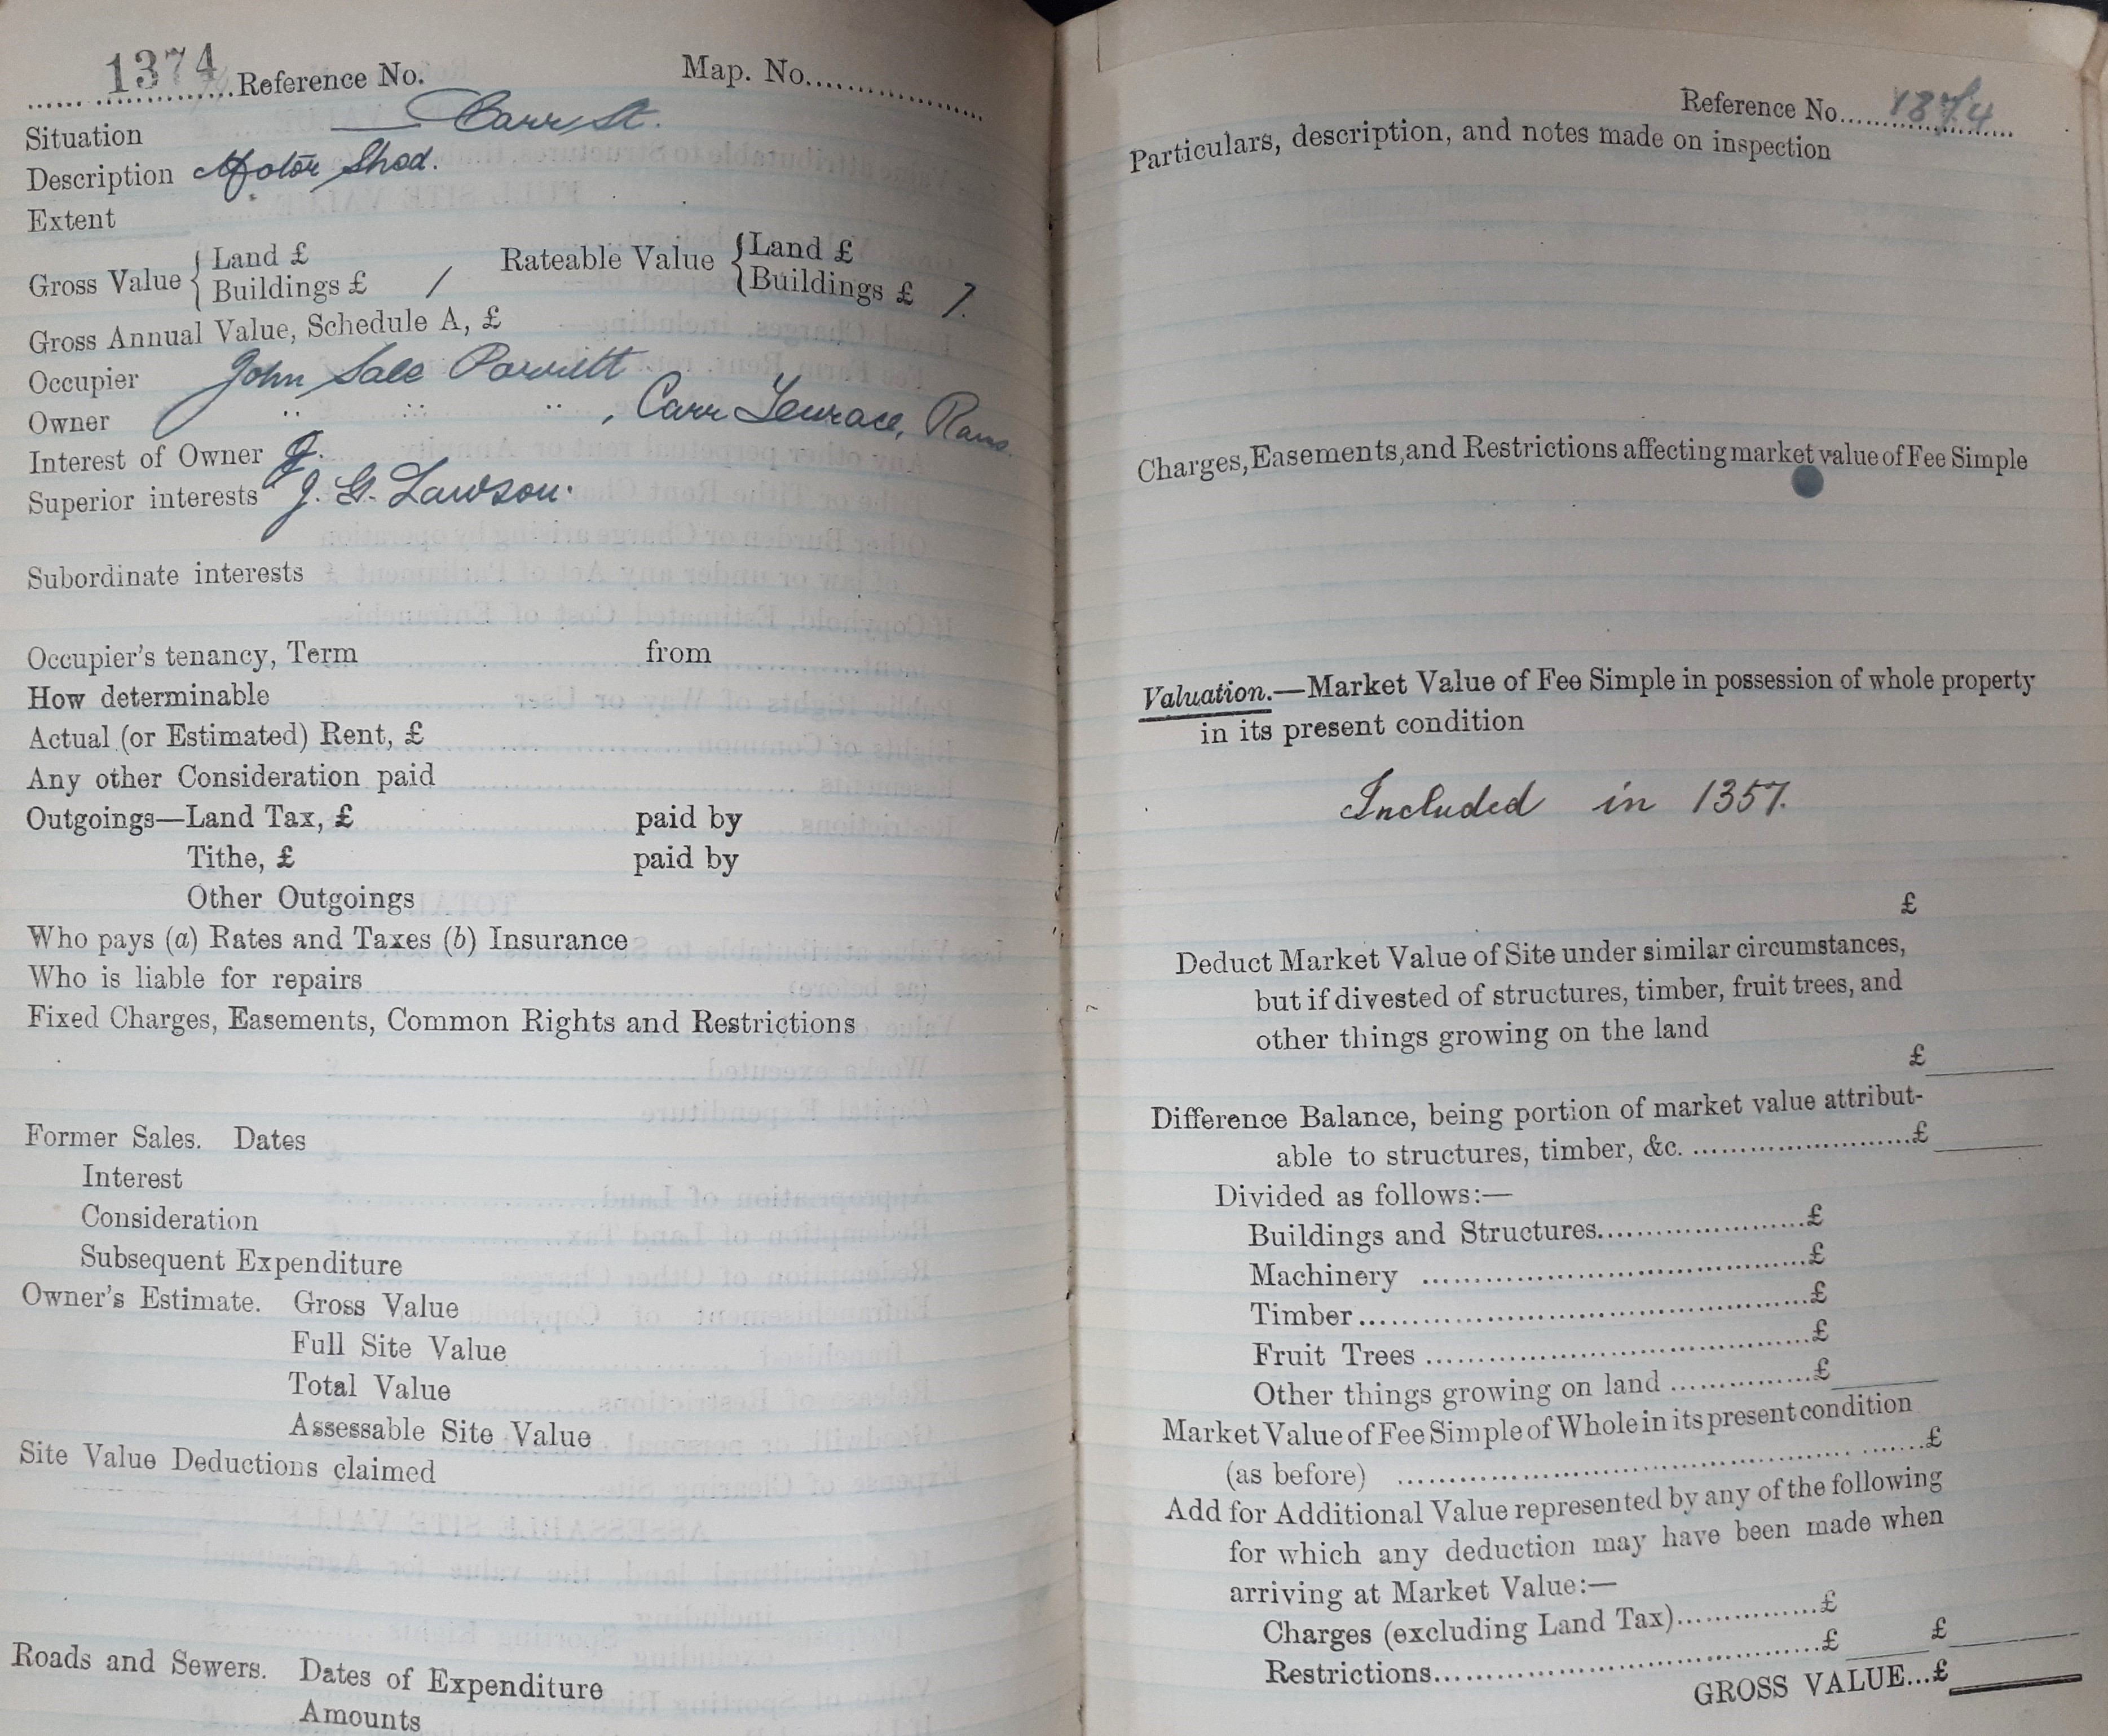 1374 Reference No. Map. No.
Situation Carr St.
Description Motor Shed.
Extent
Gross Value { Land £ Rateable Value { Land £
Buildings £ / Buildings £ /.
Gross Annual Value, Schedule A, £
Occupier John Sale
Owner " " " , Carr Terrace, Rams
Interest of Owner
Superior interests J. G. Lawson.
Subordinate interests
Occupier's tenancy, Term from
How determinable
Actual (or Estimated) Rent, £
Any other Consideration paid
Outgoings—Land Tax, £ paid by
Tithe, £ paid by
Other Outgoings
Who pays (a) Rates and Taxes (b) Insurance
Who is liable for repairs
Fixed Charges, Easements, Common Rights and Restrictions
Former Sales. Dates
Interest
Consideration
Subsequent Expenditure
Owner's Estimate. Gross Value
Full Site Value
Total Value
Assessable Site Value
Site Value Deductions claimed
Roads and Sewers. Dates of Expenditure
Amounts
Reference No. 1374
Particulars, description, and notes made on inspection
Charges, Easements, and Restrictions affecting market value of Fee Simple
Valuation.—Market Value of Fee Simple in possession of whole property
in its present condition
Included in 1357.
£
Deduct Market Value of Site under similar circumstances,
but if divested of structures, timber, fruit trees, and
other things growing on the land
£
Difference Balance, being portion of market value attribut-
able to structures, timber, &c. ........................£
Divided as follows:—
Buildings and Structures......................£
Machinery ......................£
Timber......................£
Fruit Trees ......................£
Other things growing on land ...............£
Market Value of Fee Simple of Whole in its present condition
(as before) ......................£
Add for Additional Value represented by any of the following
for which any deduction may have been made when
arriving at Market Value:—
Charges (excluding Land Tax)...............£
Restrictions......................£ £
GROSS VALUE...£